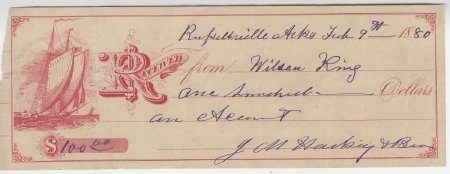 Russellville Arks Feb 9th 1880
Received from Wilson King
One hundred Dollars
on Account
$100.00 J M Harkey & Bro